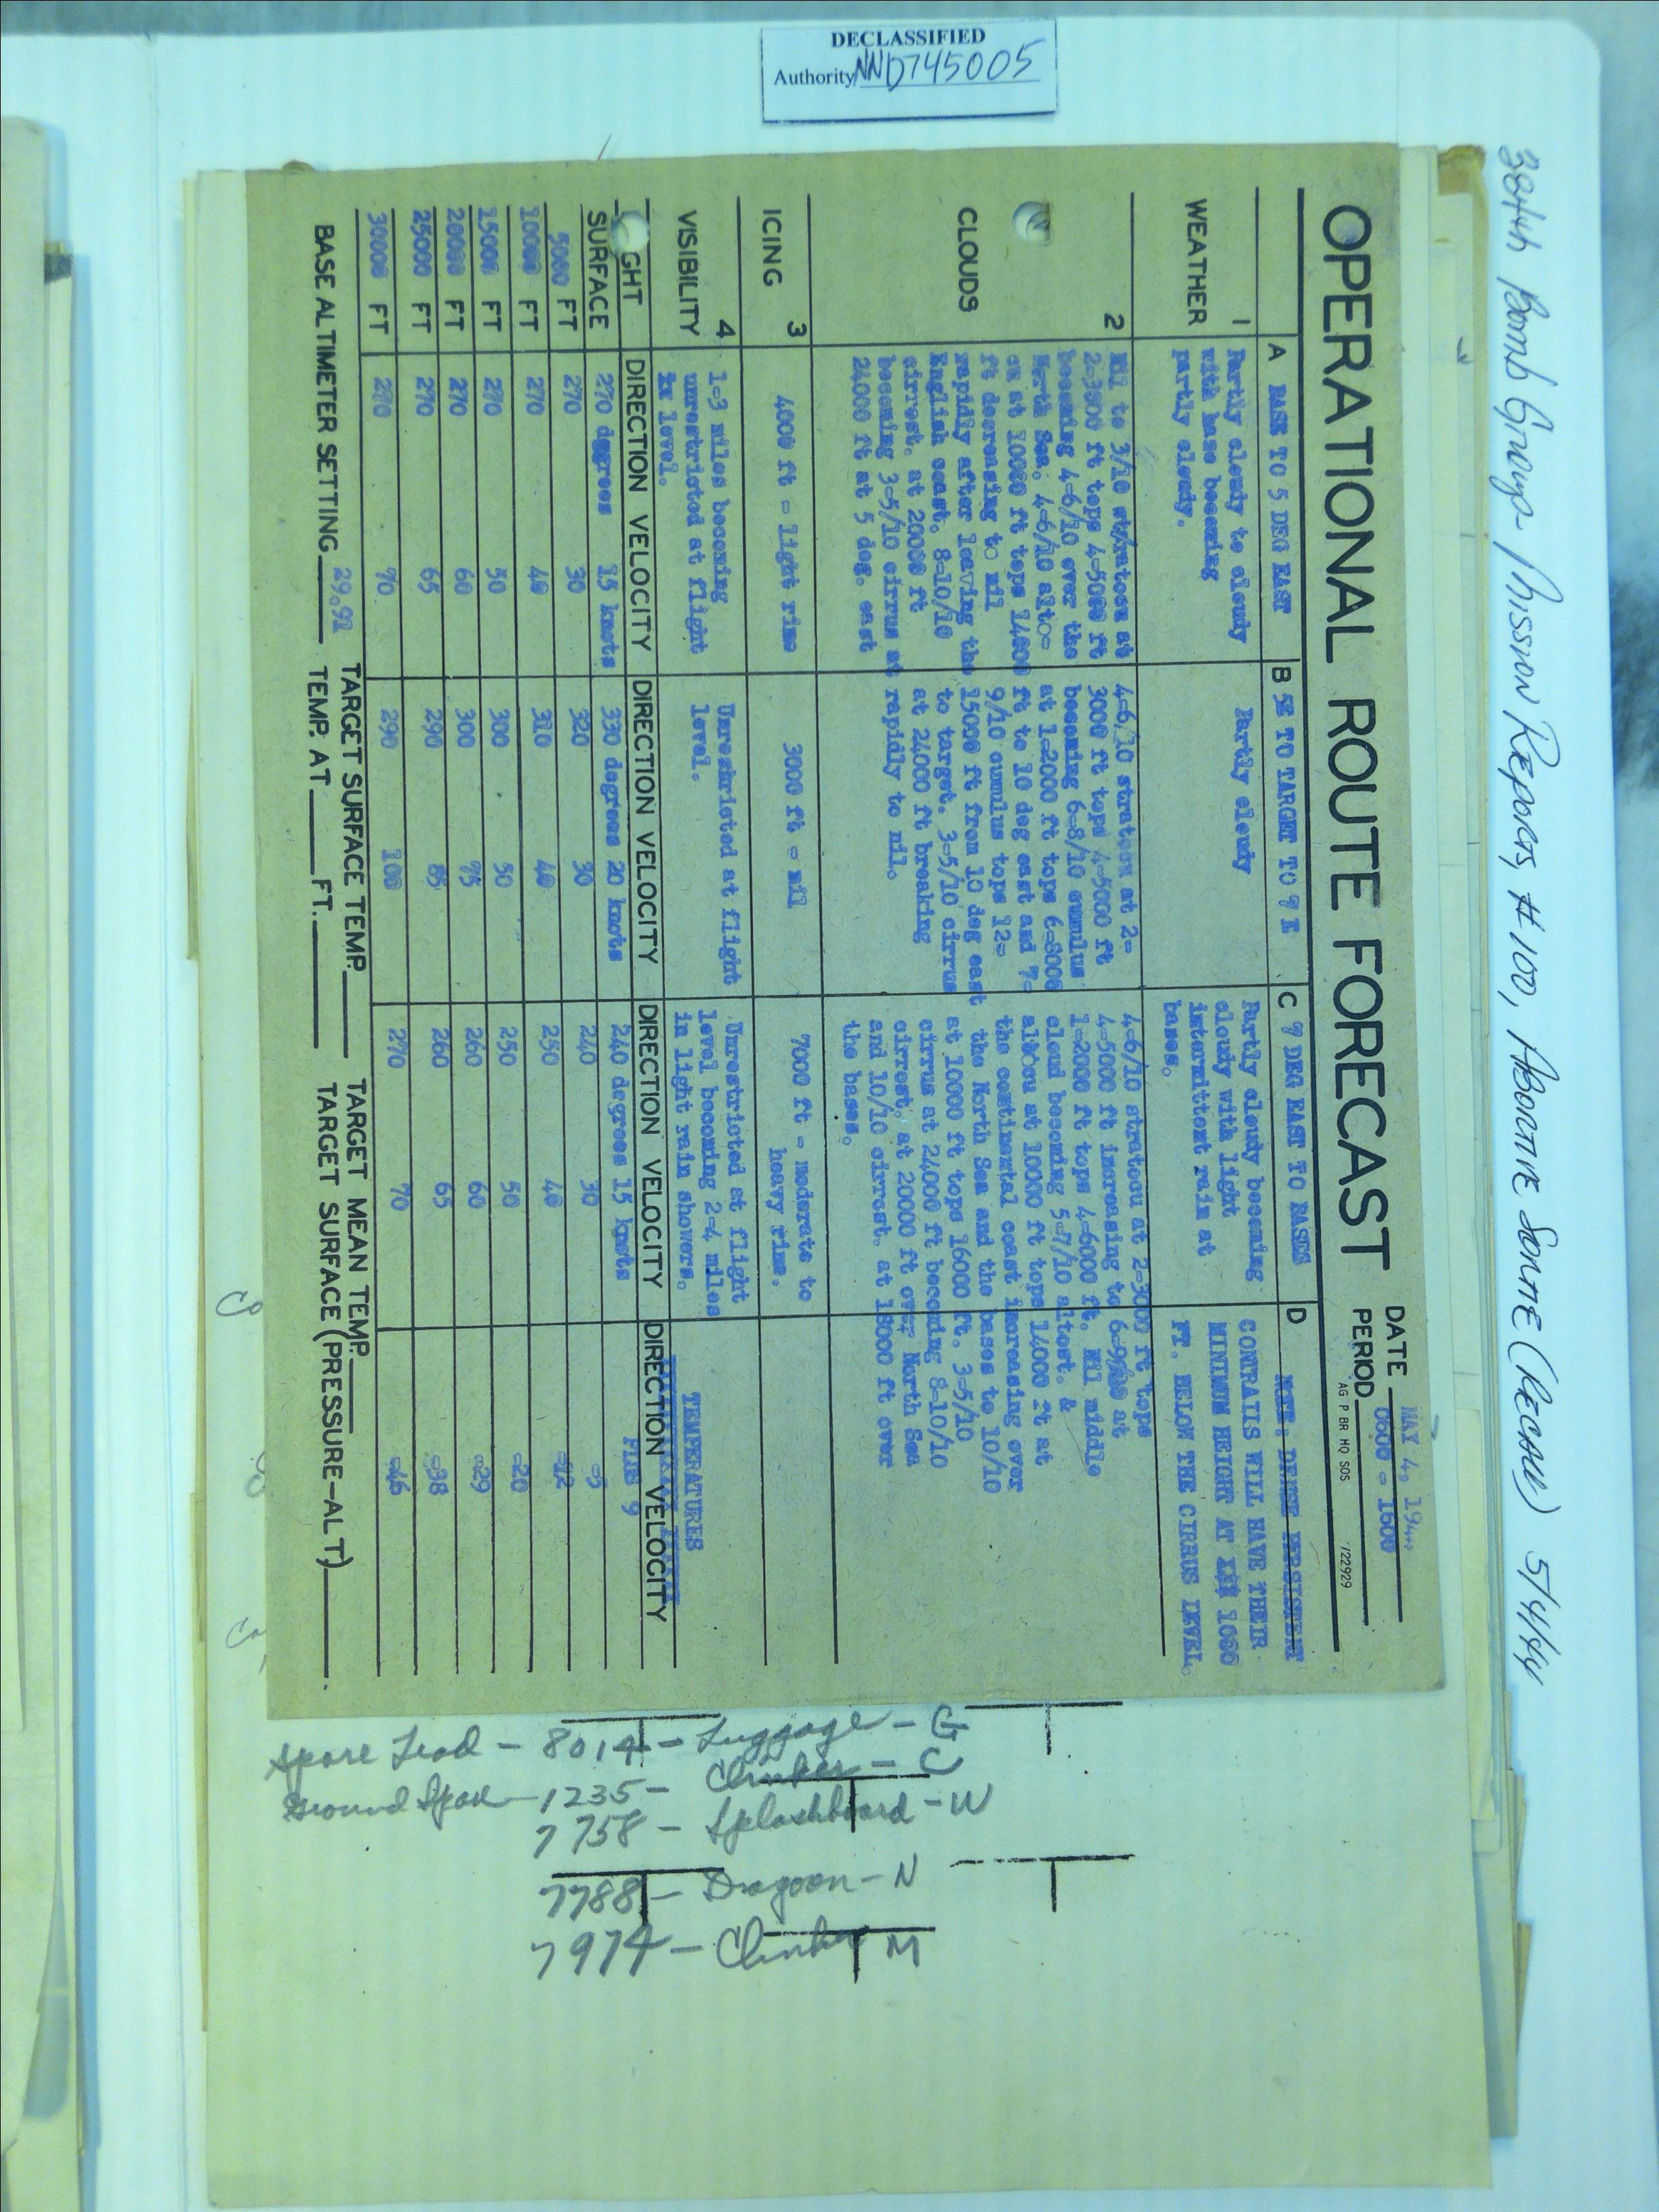 DECLASSIFIED
Authority NND745005
384th Bomb Group Mission Reports, #100, Abortive Sortie (Recall) 5/4/44
OPERATIONAL ROUTE FORECAST
DATE MAY 4, 194
PERIOD 0600 - 1600
AG P BR HQ SOS 722929
A BASE TO 5 DEG EAST
B 5E TO TARGET TO 9 E
C 9 DEG EAST TO BASES
D
1
WEATHER
Partly cloudy to cloudy
with base becoming
partly cloudy.
Partly cloudy
Partly cloudy becoming
cloudy with light
intermittent rain at
bases.
NOTE: DENSE PERSISTENT
CONTRAILS WILL HAVE THEIR
MINIMUM HEIGHT AT 1000
FT. BELOW THE CIRRUS LEVEL.
2
CLOUDS
Nil to 3/10 stratocu at
2-3000 ft tops 4-5000 ft
becoming 4-6/10 over the
North Sea. 4-6/10 alto-
cu at 10000 ft tops 14000
ft decreasing to nil
rapidly after leaving the
English coast. 8-10/10
cirrost. at 20000 ft
becoming 3-5/10 cirrus at
24000 ft at 5 deg. east
4-6/10 stratocu at 2-
3000 ft tops 4-5000 ft
becoming 6-8/10 cumulus
at 1-2000 ft tops 6-8000
ft to 10 deg east and 7-
9/10 cumulus tops 12-
15000 ft from 10 deg east
to target. 3-5/10 cirrus
at 24000 ft breaking
rapidly to nil.
4-6/10 stratocu at 2-3000 ft tops
4-5000 ft increasing to 6- at
1-2000 ft tops 4-6000 ft. Nil middle
cloud becoming 5-7/10 altost. &
altocu at 10000 ft tops 14000 ft at
the continental coast increasing over
the North Sea and the bases to 10/10
at 10000 ft tops 16000 ft. 3-5/10
cirrus at 24000 ft becoming 8-10/10
cirrost. at 20000 ft over North Sea
and 10/10 cirrost. at 18000 ft over
the bases.
3
ICING
4000 ft - light rime
3000 ft - nil
7000 ft - moderate to
heavy rime.
4
VISIBILITY
1-3 miles becoming
unrestricted at flight
level.
Unrestricted at flight
level.
Unrestricted at flight
level becoming 2-4 miles
in light rain showers.
TEMPERATURES
GHT DIRECTION VELOCITY DIRECTION VELOCITY DIRECTION VELOCITY DIRECTION VELOCITY
SURFACE 270 degrees 15 knots 330 degrees 20 knots 240 degrees 15 knots PLUS 9
5000 FT 270 30 320 30 240 30 -5
10000 FT 270 40 310 40 250 40 -12
15000 FT 270 50 300 50 250 50 -20
20000 FT 270 60 300 75 260 60 -29
25000 FT 270 65 290 85 260 65 -38
30000 FT 270 70 290 100 270 70 -46
BASE ALTIMETER SETTING 29.92
TARGET SURFACE TEMP.
TARGET MEAN TEMP.
TEMP. AT FT.
TARGET SURFACE (PRESSURE-ALT)
Spare Lead - 8014 - Luggage - G
Ground Spare - 1235 - Clinker - C
7758 - Splashboard - W
7788 - Dragoon - N
7974 - Clinker M